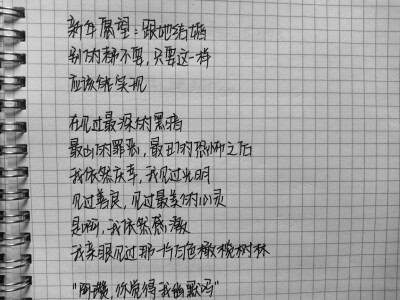 新年愿望：跟她结婚
别的都不要，只要这一样
应该能实现
在见过最深的黑暗
最凶的罪恶，最丑的恐怖之后
我依然庆幸，我见过光明
见过善良，见过最美的心灵
是啊，我依然感激
我亲眼见过那一片白色橄榄树林
"阿瓒，你觉得我幽默吗"